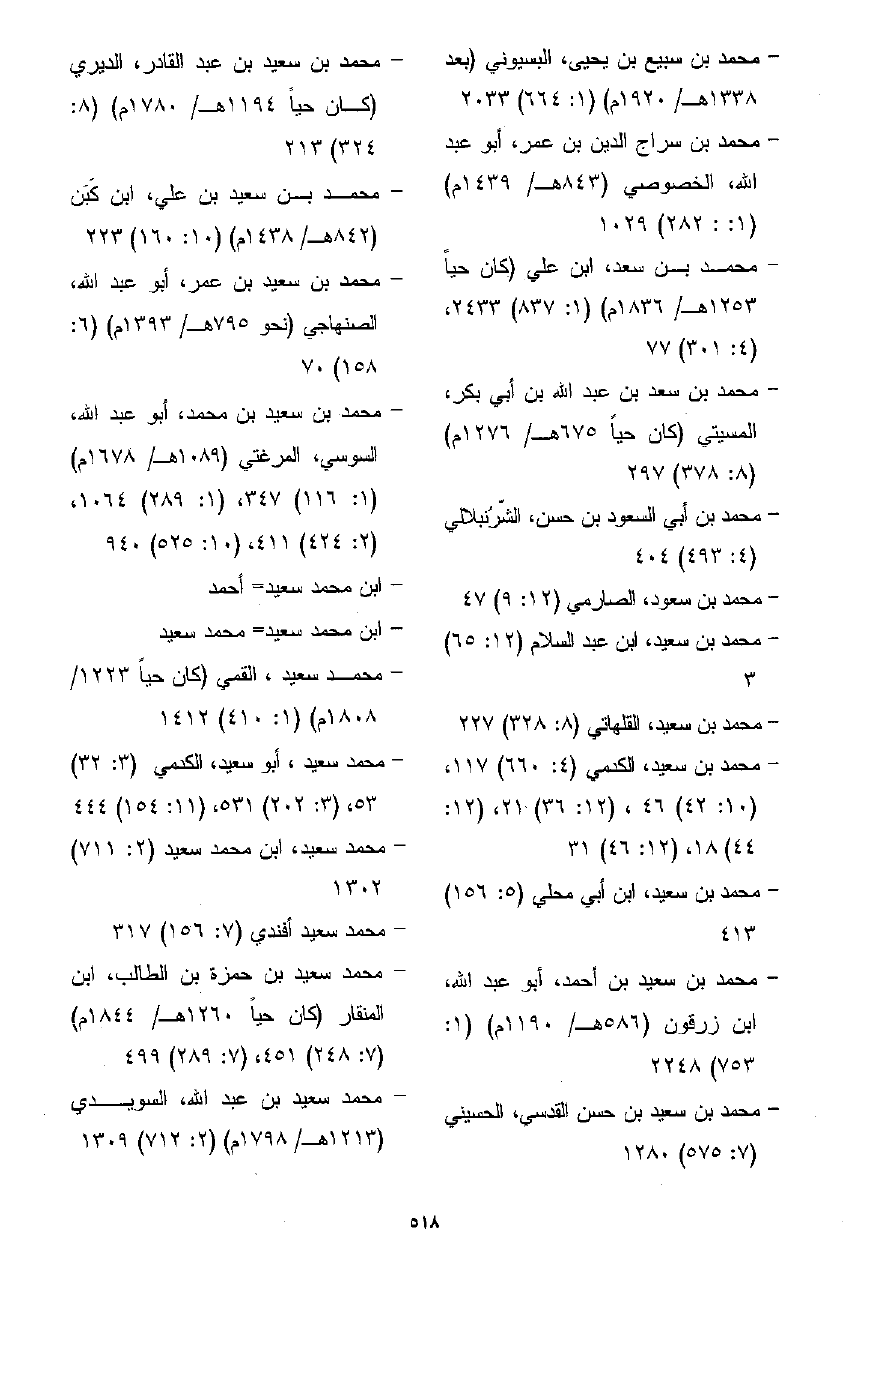 - محمد بن سبيع بن يحيى، البسيوني (بعد
١٣٣٨هـ/ ١٩٢٠م) (١: ٦٦٤) ٢٠٣٣
- محمد بن سراج الدين بن عمر، أبو عبد
الله، الخصوصي (٨٤٣هـ/ ١٤٣٩م)
(١: : ٢٨٢) ١٠٢٩
- محمد بن سعد، ابن علي (كان حياً
١٢٥٣هـ/ ١٨٣٦م) (١: ٨٣٧) ٢٤٣٣،
(٤: ٣٠١) ٧٧
- محمد بن سعد بن عبد الله بن أبي بكر،
المسيتي (كان حياً ٦٧٥هـ/ ١٢٧٦م)
(٨: ٣٧٨) ٢٩٧
- محمد بن أبي السعود بن حسن، الشّرُنبلالي
(٤: ٤٩٣) ٤٠٤
- محمد بن سعود، الصارمي (١٢: ٩) ٤٧
- محمد بن سعيد، ابن عبد السلام (١٢: ٦٥)
٣
- محمد بن سعيد، القلهاتي (٨: ٣٢٨) ٢٢٧
- محمد بن سعيد، الكدمي (٤: ٦٦٠) ١١٧،
(١٠: ٤٢) ٤٦ ، (١٢: ٣٦) ٢١، (١٢:
٤٤) ١٨، (١٢: ٤٦) ٣١
- محمد بن سعيد، ابن أبي محلي (٥: ١٥٦)
٤١٣
- محمد بن سعيد بن أحمد، أبو عبد الله،
ابن زرقون (٥٨٦هـ/ ١١٩٠م) (١:
٧٥٣) ٢٢٤٨
- محمد بن سعيد بن حسن القدسي، الحسيني
(٧: ٥٧٥) ١٢٨٠
- محمد بن سعيد بن عبد القادر، الديري
(كان حياً ١١٩٤هـ/ ١٧٨٠م) (٨:
٣٢٤) ٢١٣
- محمد بن سعيد بن علي، ابن كَبَّن
(٨٤٢هـ/ ١٤٣٨م) (١٠: ١٦٠) ٢٢٣
- محمد بن سعيد بن عمر، أبو عبد الله،
الصنهاجي (نحو ٧٩٥هـ/ ١٣٩٣م) (٦:
١٥٨) ٧٠
- محمد بن سعيد بن محمد، أبو عبد الله،
السوسي، المرغتي (١٠٨٩هـ/ ١٦٧٨م)
(١: ١١٦) ٣٤٧، (١: ٢٨٩) ١٠٦٤،
(٢: ٤٢٤) ٤١١، (١٠: ٥٢٥) ٩٤٠
- ابن محمد سعيد= أحمد
- ابن محمد سعيد= محمد سعيد
- محمد سعيد ، القمي (كان حياً ١٢٢٣/
١٨٠٨م) (١: ٤١٠) ١٤١٢
- محمد سعيد ، أبو سعيد، الكدمي (٣: ٣٢)
٥٣، (٣: ٢٠٢) ٥٣١، (١١: ١٥٤) ٤٤٤
- محمد سعيد، ابن محمد سعيد (٢: ٧١١)
١٣٠٢
- محمد سعيد أفندي (٧: ١٥٦) ٣١٧
- محمد سعيد بن حمزة بن الطالب، ابن
المنقار (كان حياً ١٢٦٠هـ/ ١٨٤٤م)
(٧: ٢٤٨) ٤٥١، (٧: ٢٨٩) ٤٩٩
- محمد سعيد بن عبد الله، السويدي
(١٢١٣هـ/ ١٧٩٨م) (٢: ٧١٢) ١٣٠٩
٥١٨